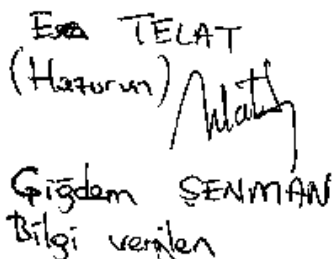 Esra TELAT
(Hazurun)
Çiğdem ŞENMAN
Bilgi verilen